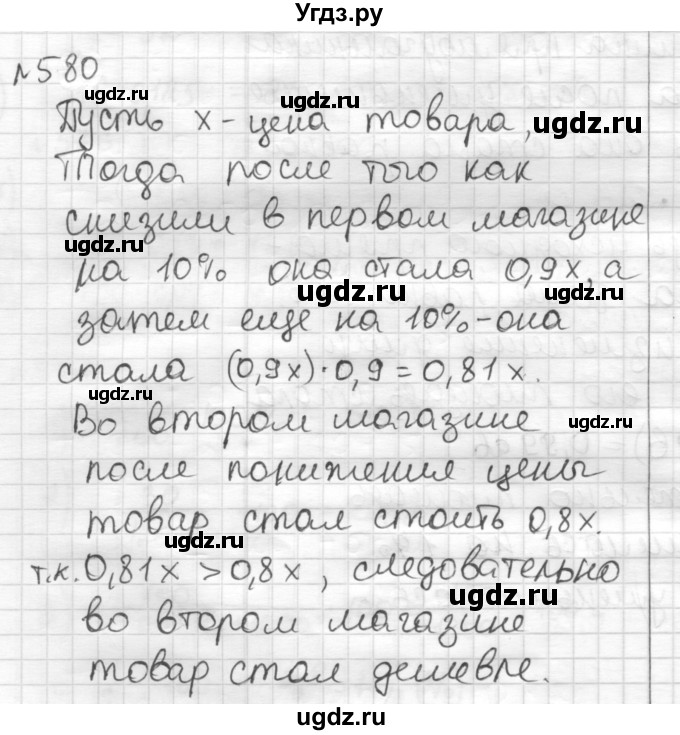 Угдз.ру
№580
ugdz.ru
ugdz.ru
Пусть x - цена товара,
ugdz.ru
Тогда после того как
снизили в первом магазине
ugdz.ru
на 10% она стала 0,9x, а
ugdz.ru
ugdz.ru
затем еще на 10% - она
стала (0,9x)·0,9=0,81x.
ugdz.ru
Во втором магазине
ugdz.ru
после понижения цены
товар стал стоить 0,8x.
ugdz.ru
т.к. 0,81x > 0,8x, следовательно
ugdz.ru
во втором магазине
товар стал дешевле.
ugdz.ru